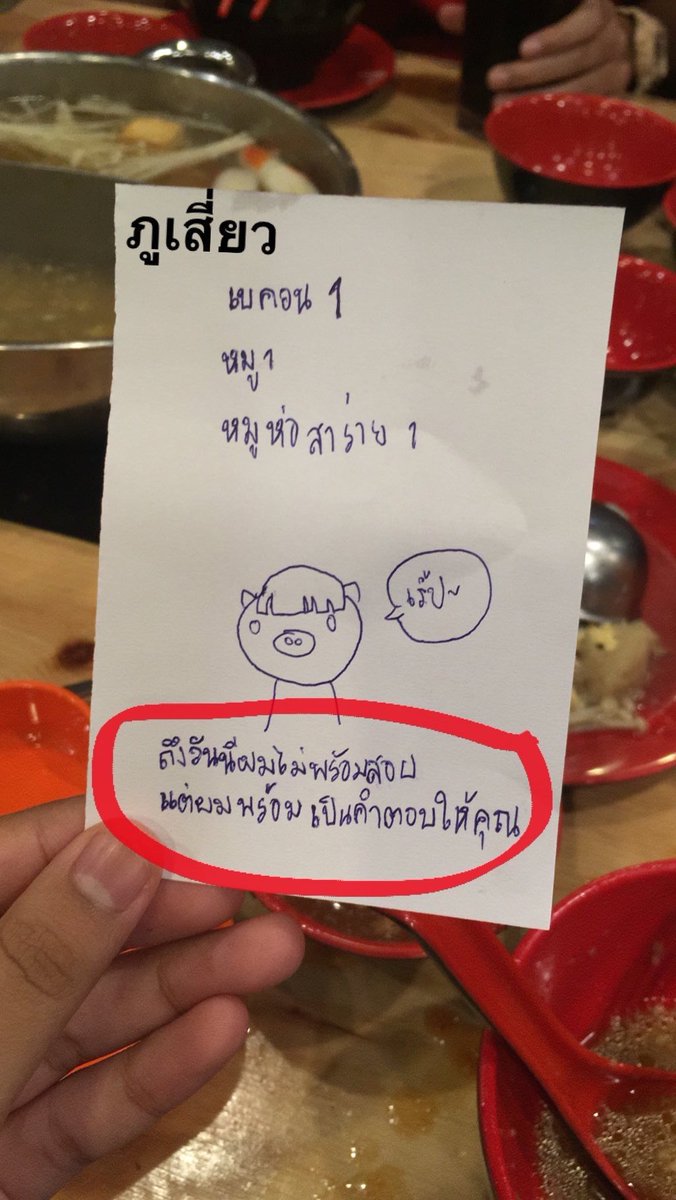 ภูเสี่ยว
เบคอน 1
หมู 1
หมูห่อสาร่าย 1
เร้ป~
ถึงวันนี้ผมไม่พร้อมสอบ
แต่ผมพร้อมเป็นคำตอบให้คุณ